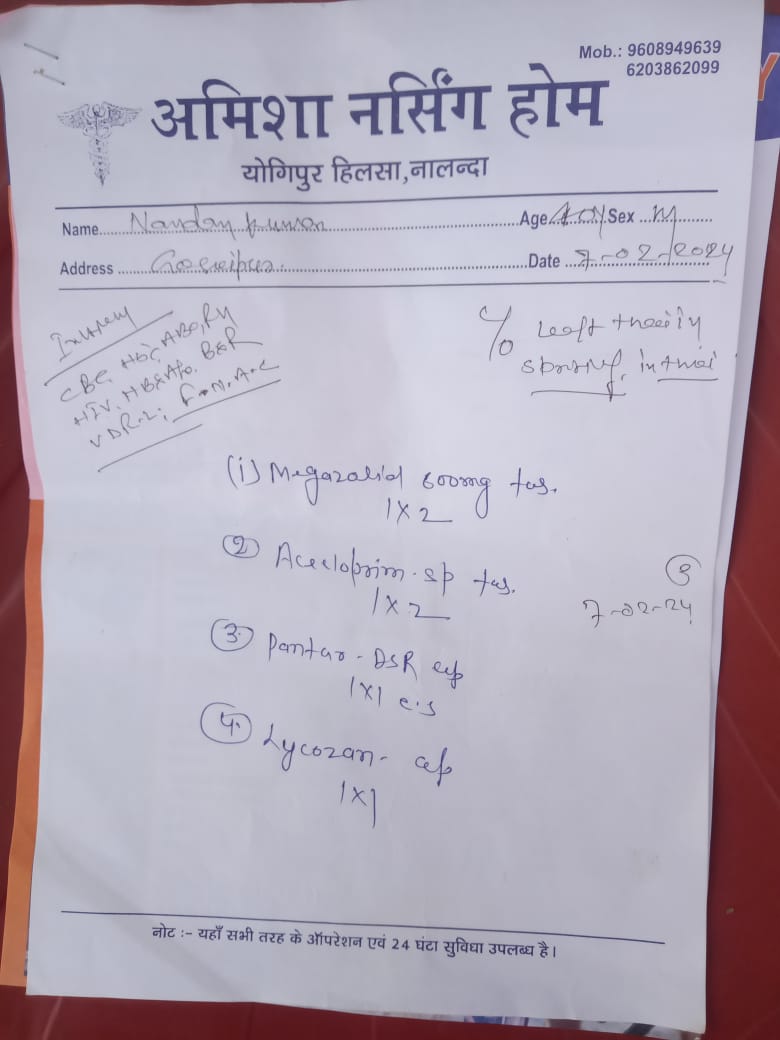 Mob.: 9608949639
6203862099
अमिशा नर्सिंग होम
योगिपुर हिलसा,नालन्दा
Name..... Nandan Kumar .....Age 40Y Sex ... M .....
Address ..... .....Date ... 7-02-2024
CBC, ABO, RH
HIV, HBsAg, B&R
VDRL;
C/o Leaft
in
(i) Megazolid 600mg tab.
1X2
(2) Aceclobrim-sp tab.
1X2
(3)
7-02-24
(3.) Pantar-DSR cap
1X1 e.s
(4.) Lycozan- cap
1X1
नोट :- यहाँ सभी तरह के ऑपरेशन एवं 24 घंटा सुविधा उपलब्ध है।